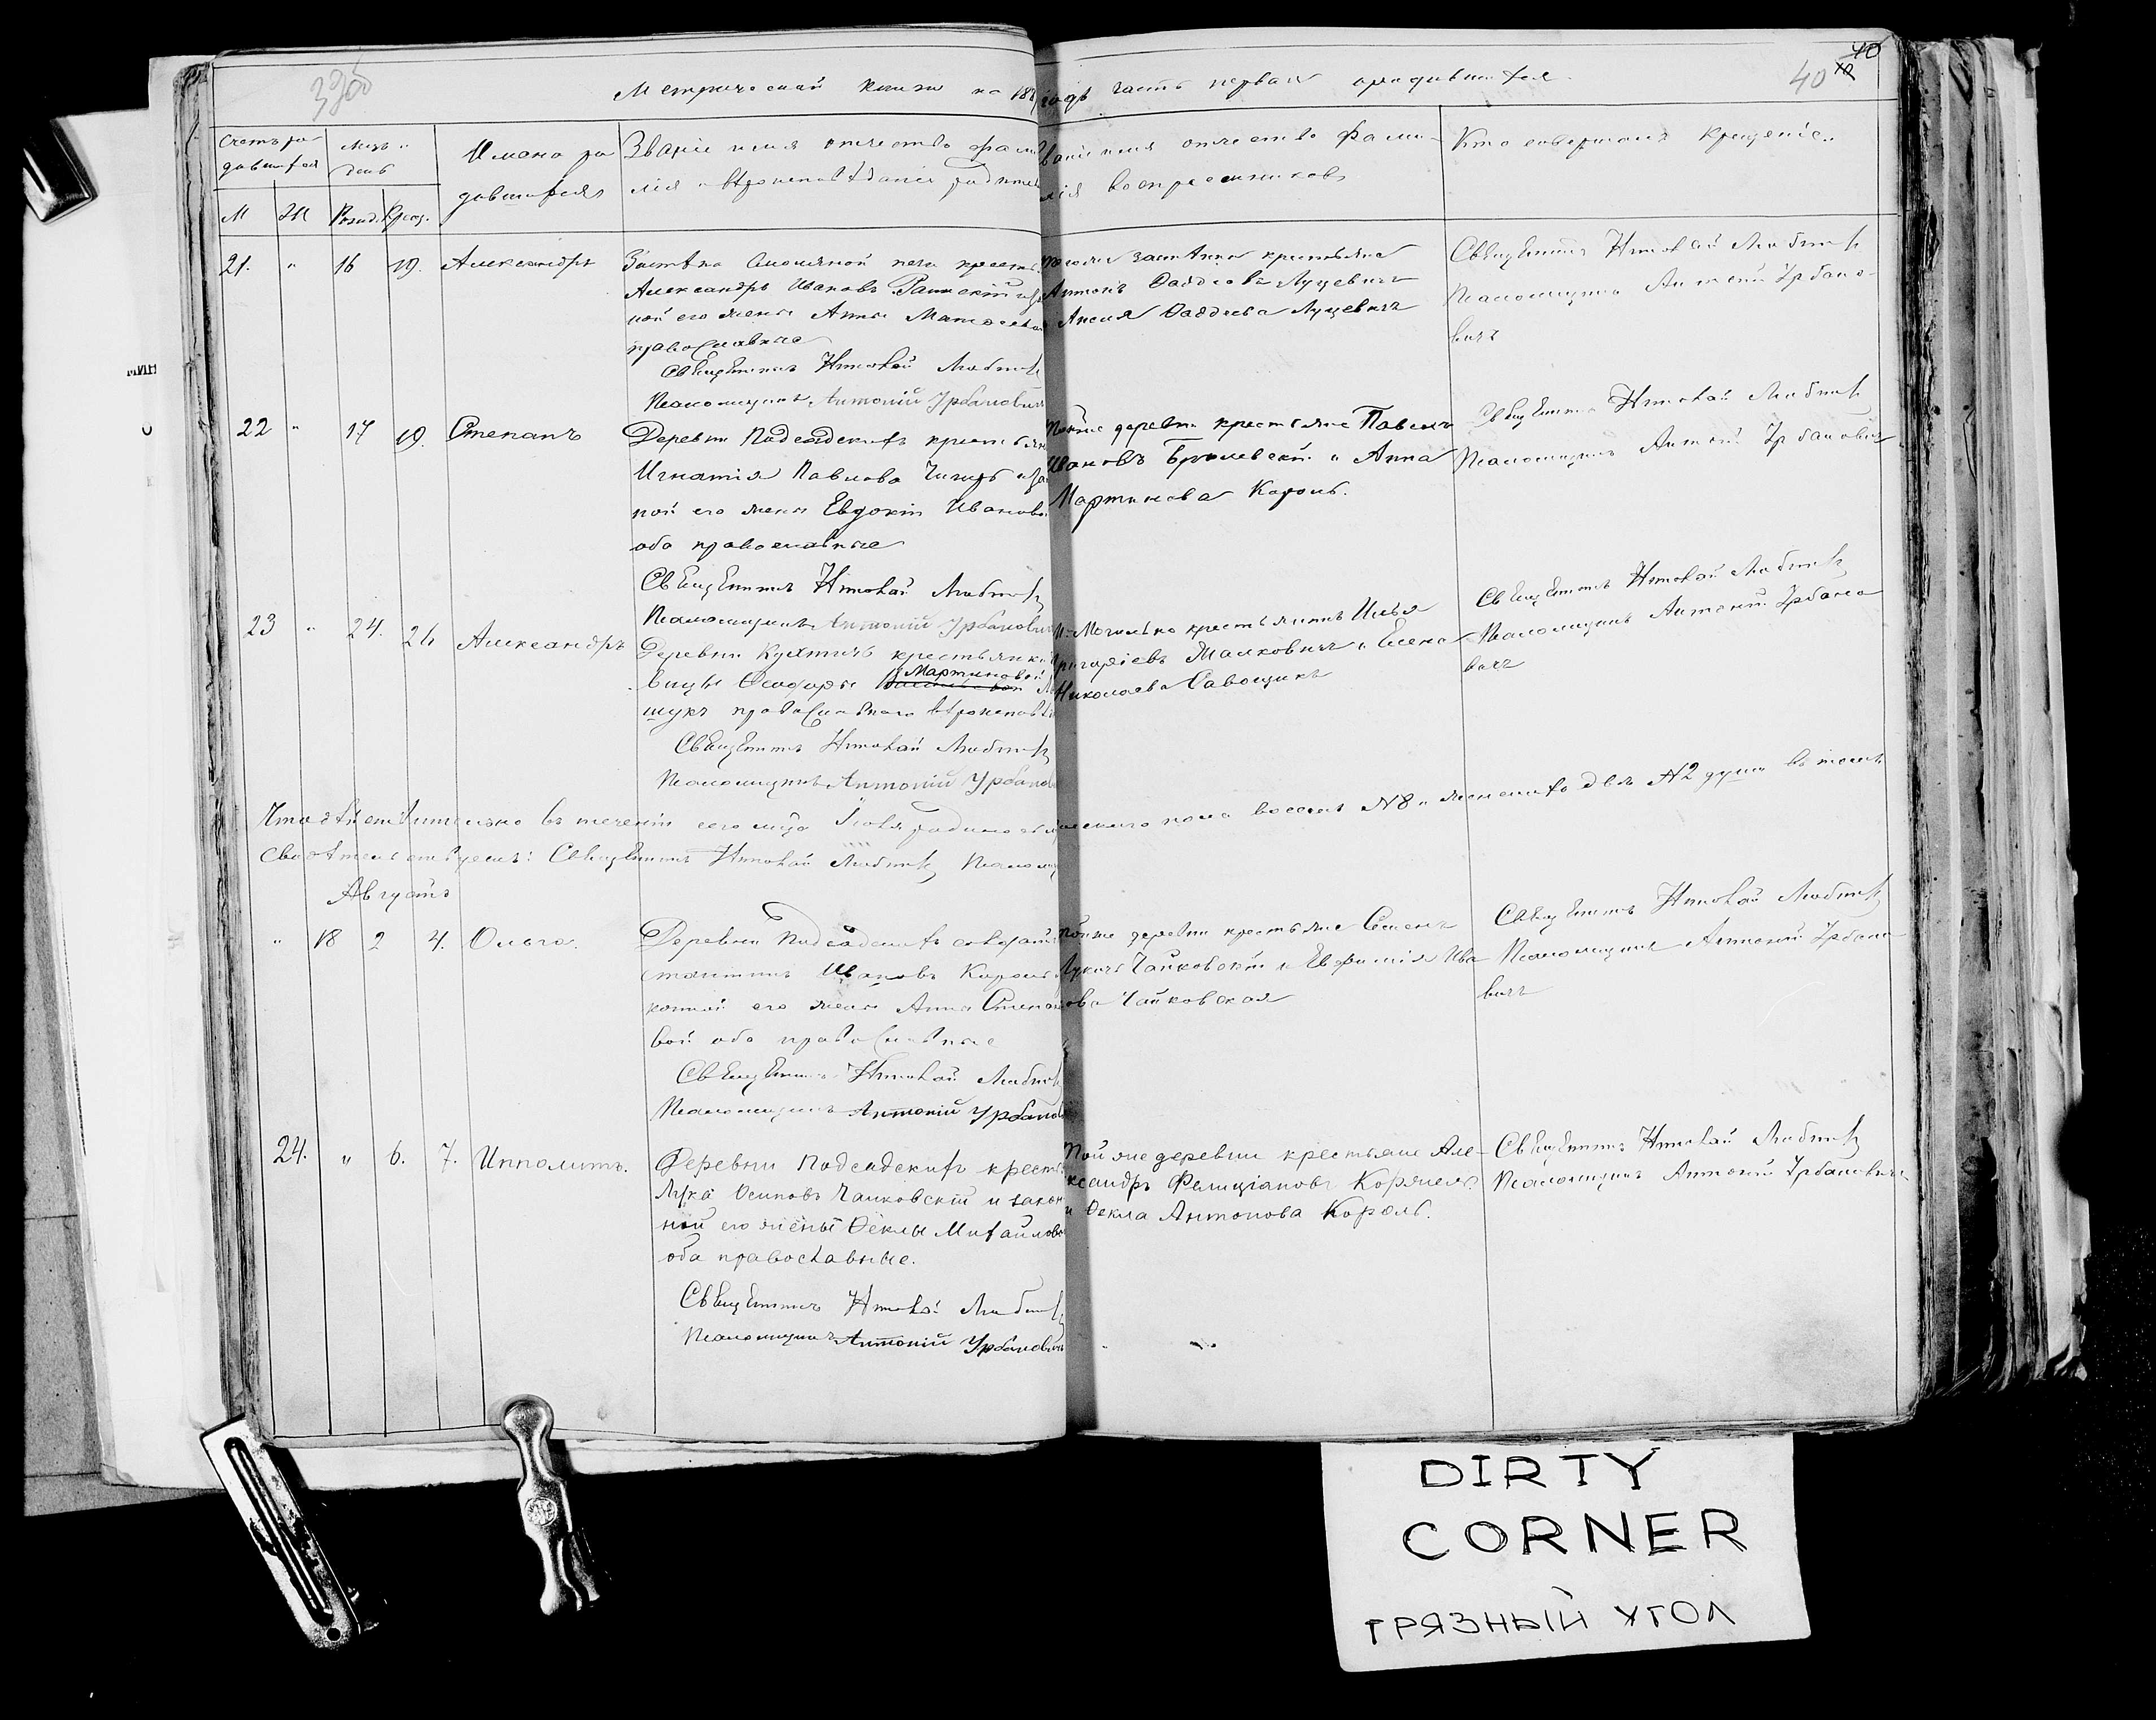 3900
40
40
Метрической книги на 187
годъ часть первая о родившихся
Счетъ ро-
дившихся
Мѣс. и
день
М
Ж
Рожд.
Крещ.
Имена ро
дившихся
Званіе имя отчество фами
лія и вѣроисповѣданіе родителей
Званіе имя отчество фами-
лія воспреемниковъ
Кто совершалъ крещеніе
21. " 16 19. Александръ
Застѣнка Смоляной печи крестья
Александръ Ивановъ и за
ной его жены Анны Матвеевой
православные
Священникъ Любичъ
Псаломщикъ Антоній Урбановичъ
застѣнка крестьяне
Антонъ Фаддеевъ Луцевичъ
Анеля Фаддеева Луцевичъ
Священникъ Любичъ
Псаломщикъ Антоній Урбано-
вичъ
22 " 17 19. Степанъ
Деревни Подсадскихъ крестьян
Игнатія Павлова и зако
ной его жены Евдокіи Ивановой
оба православные
Священникъ Любичъ
Псаломщикъ Антоній Урбановичъ
Тойже деревни крестьяне Павелъ
Ивановъ и Анна
Мартинова Король.
Священникъ Любичъ
Псаломщикъ Антоній Урбановичъ
23 " 24. 26 Александръ
Деревни Кухтичъ крестьянки
вицы Мартиновой
щукъ православного вѣроисповѣд
Священникъ Любичъ
Псаломщикъ Антоній Урбанов
М. Могильно крестьянинъ Илья
Григоріевъ и Елена
Николаева Савощикъ
Священникъ Любичъ
Псаломщикъ Антоній Урбано
вичъ
Что дѣйствительно въ теченіи сего мѣс. Іюля родилось мужескаго пола восемь №8 и женскаго двѣ №2 души въ томъ
свидѣтельствуемъ: Священникъ Любичъ Псаломщ
Августъ
" 18 2 4. Ольга.
Деревни Подсадскихъ
Ивановъ Король
конной его жены Анна Степано
вой оба православные
Священникъ Любичъ
Псаломщикъ Антоній Урбанов
Тойже деревни крестьяне Семенъ
Лукичъ Чайковскій и Евфимія Ива
нова Чайковская
Священникъ Любичъ
Псаломщикъ Антоній Урбано
вичъ
24. " 6. 7. Ипполитъ.
Деревни Подсадскихъ кресть
Лука Осиповъ Чайковскій и закон
ной его жены Феклы Михайловой
оба православные.
Священникъ Любичъ
Псаломщикъ Антоній Урбановичъ
Той же деревни крестьяне Але-
ксандръ Фелиціановъ
и Фекла Антонова Король.
Священникъ Любичъ
Псаломщикъ Антоній Урбановичъ
DIRTY
CORNER
ГРЯЗНЫЙ УГОЛ